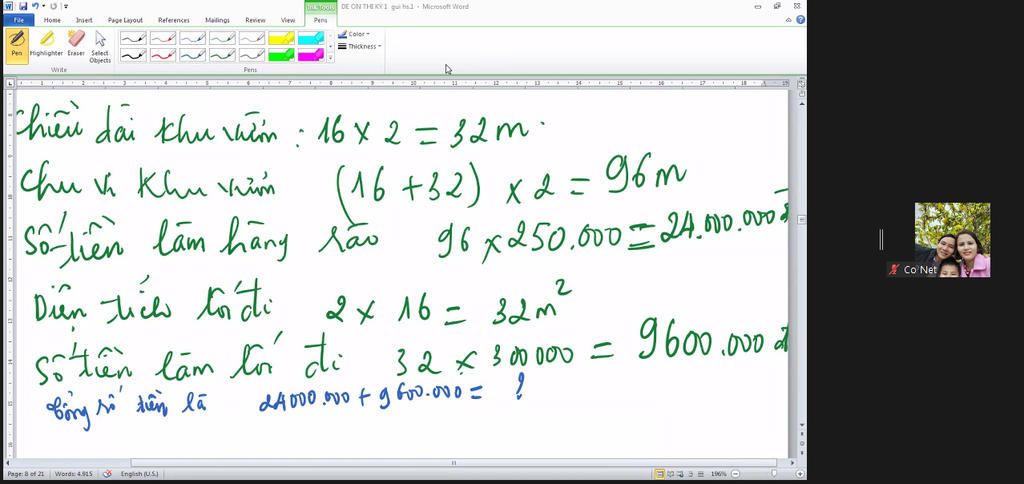 DE ON THI KY 1 gui hs.1 - Microsoft Word
Ink Tools
File Home Insert Page Layout References Mailings Review View Pens
Pen Highlighter Eraser Select Objects
Color
Thickness
Write Pens
chiều dài khu vườn : 16 × 2 = 32 m.
Chu vi khu vườn (16 + 32) × 2 = 96 m
Số tiền làm hàng rào 96 × 250.000 = 24.000.000 đ
Diện tích lối đi 2 × 16 = 32 m²
Số tiền làm lối đi 32 × 300000 = 9600.000 đ
Tổng số tiền là 24000.000 + 9600.000 = ?
Co Net
Page: 8 of 21 Words: 4.915 English (U.S.) 196%